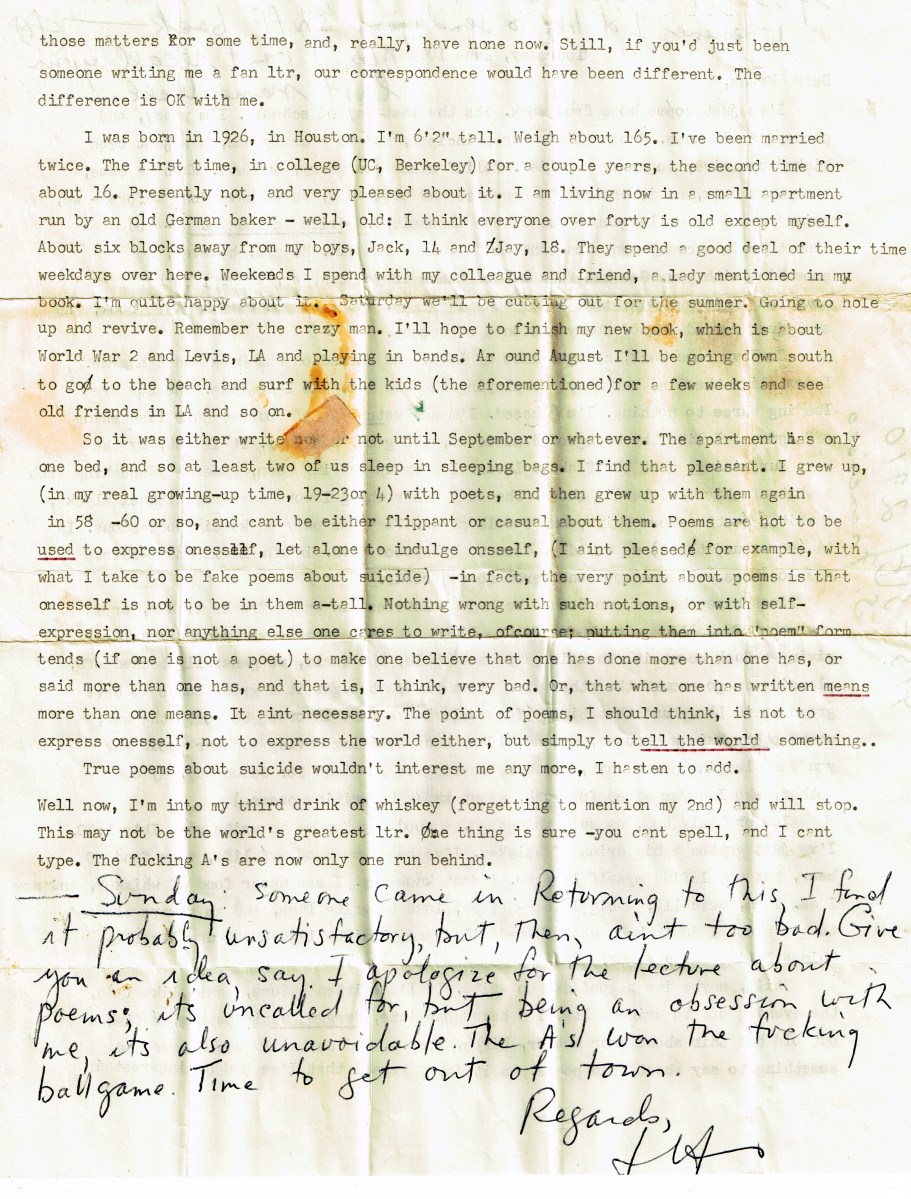 those matters For some time, and, really, have none now. Still, if you'd just been
someone writing me a fan ltr, our correspondence would have been different. The
difference is OK with me.
I was born in 1926, in Houston. I'm 6'2" tall. Weigh about 165. I've been married
twice. The first time, in college (UC, Berkeley) for a couple years, the second time for
about 16. Presently not, and very pleased about it. I am living now in a small apartment
run by an old German baker - well, old: I think everyone over forty is old except myself.
About six blocks away from my boys, Jack, 14 and Jay, 18. They spend a good deal of their time
weekdays over here. Weekends I spend with my colleague and friend, a lady mentioned in my
book. I'm quite happy about it. Saturday we'll be cutting out for the summer. Going to hole
up and revive. Remember the crazy man. I'll hope to finish my new book, which is about
World War 2 and Levis, LA and playing in bands. Ar ound August I'll be going down south
to go to the beach and surf with the kids (the aforementioned)for a few weeks and see
old friends in LA and so on.
So it was either write now or not until September or whatever. The apartment has only
one bed, and so at least two of us sleep in sleeping bags. I find that pleasant. I grew up,
(in my real growing-up time, 19-23or 4) with poets, and then grew up with them again
in 58 -60 or so, and cant be either flippant or casual about them. Poems are not to be
used to express onesself, let alone to indulge onsself, (I aint pleased for example, with
what I take to be fake poems about suicide) -in fact, the very point about poems is that
onesself is not to be in them a-tall. Nothing wrong with such notions, or with self-
expression, nor anything else one cares to write, ofcourse; putting them into "poem" form
tends (if one is not a poet) to make one believe that one has done more than one has, or
said more than one has, and that is, I think, very bad. Or, that what one has written means
more than one means. It aint necessary. The point of poems, I should think, is not to
express onesself, not to express the world either, but simply to tell the world something..
True poems about suicide wouldn't interest me any more, I hasten to add.
Well now, I'm into my third drink of whiskey (forgetting to mention my 2nd) and will stop.
This may not be the world's greatest ltr. One thing is sure -you cant spell, and I cant
type. The fucking A's are now only one run behind.
— Sunday. Someone came in. Returning to this, I find
it probably unsatisfactory, but, then, aint too bad. Give
you an idea, say. I apologize for the lecture about
poems; it's uncalled for, but, being an obsession with
me, its also unavoidable. The A's won the fucking
ballgame. Time to get out of town.
Regards,